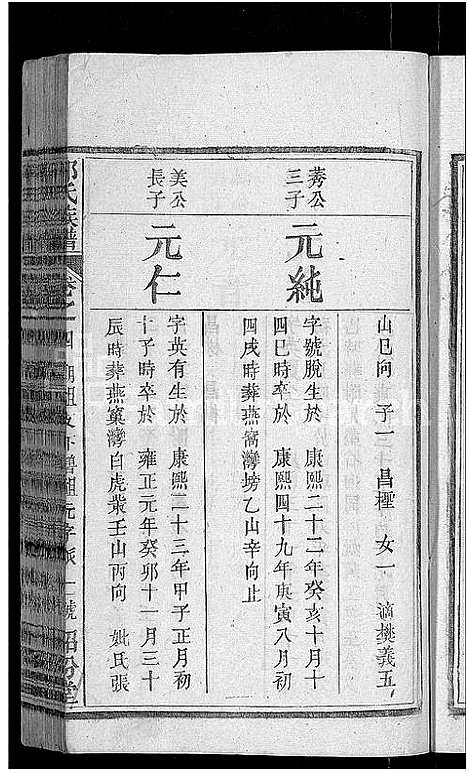 山巳向　子一　昌檉　女一　適樊義五
莠公三子
元純
字號脫生於　康熙二十二年癸亥十月十
四巳時卒於　康熙四十九年庚寅八月初
四戌時葬燕窩灣塝乙山辛向止
美公長子
元仁
字英有生於　康熙二十三年甲子正月初
十子時卒於　雍正元年癸卯十一月三十
辰時葬燕窠灣白虎嘴壬山丙向　妣氏張
氏族譜